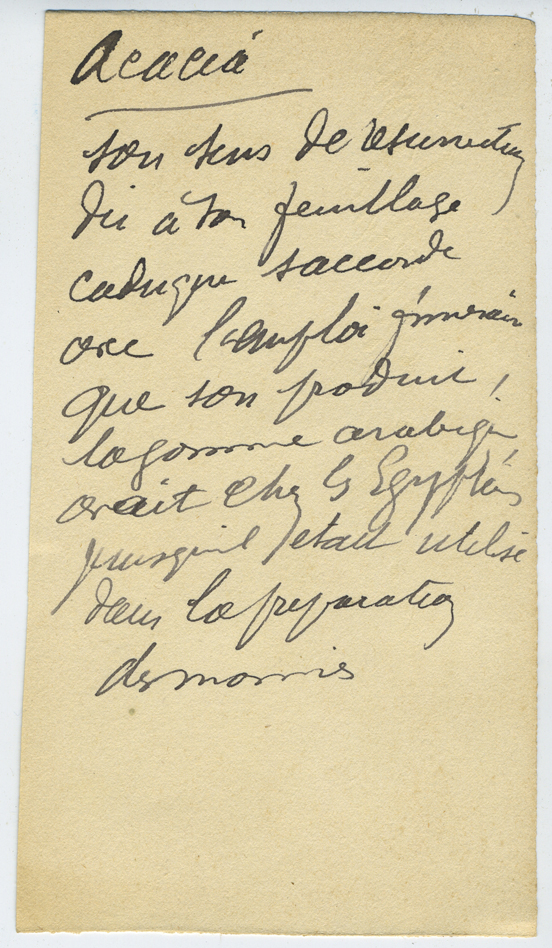 Acacia
son sens de resurrection
du à son feuillage
caduque saccorde
avec l'emploi funeraire
que son produit,
la gomme arabique
avait chez les Egyptiens
puisquil etait utilisé
dans la preparation
des momies